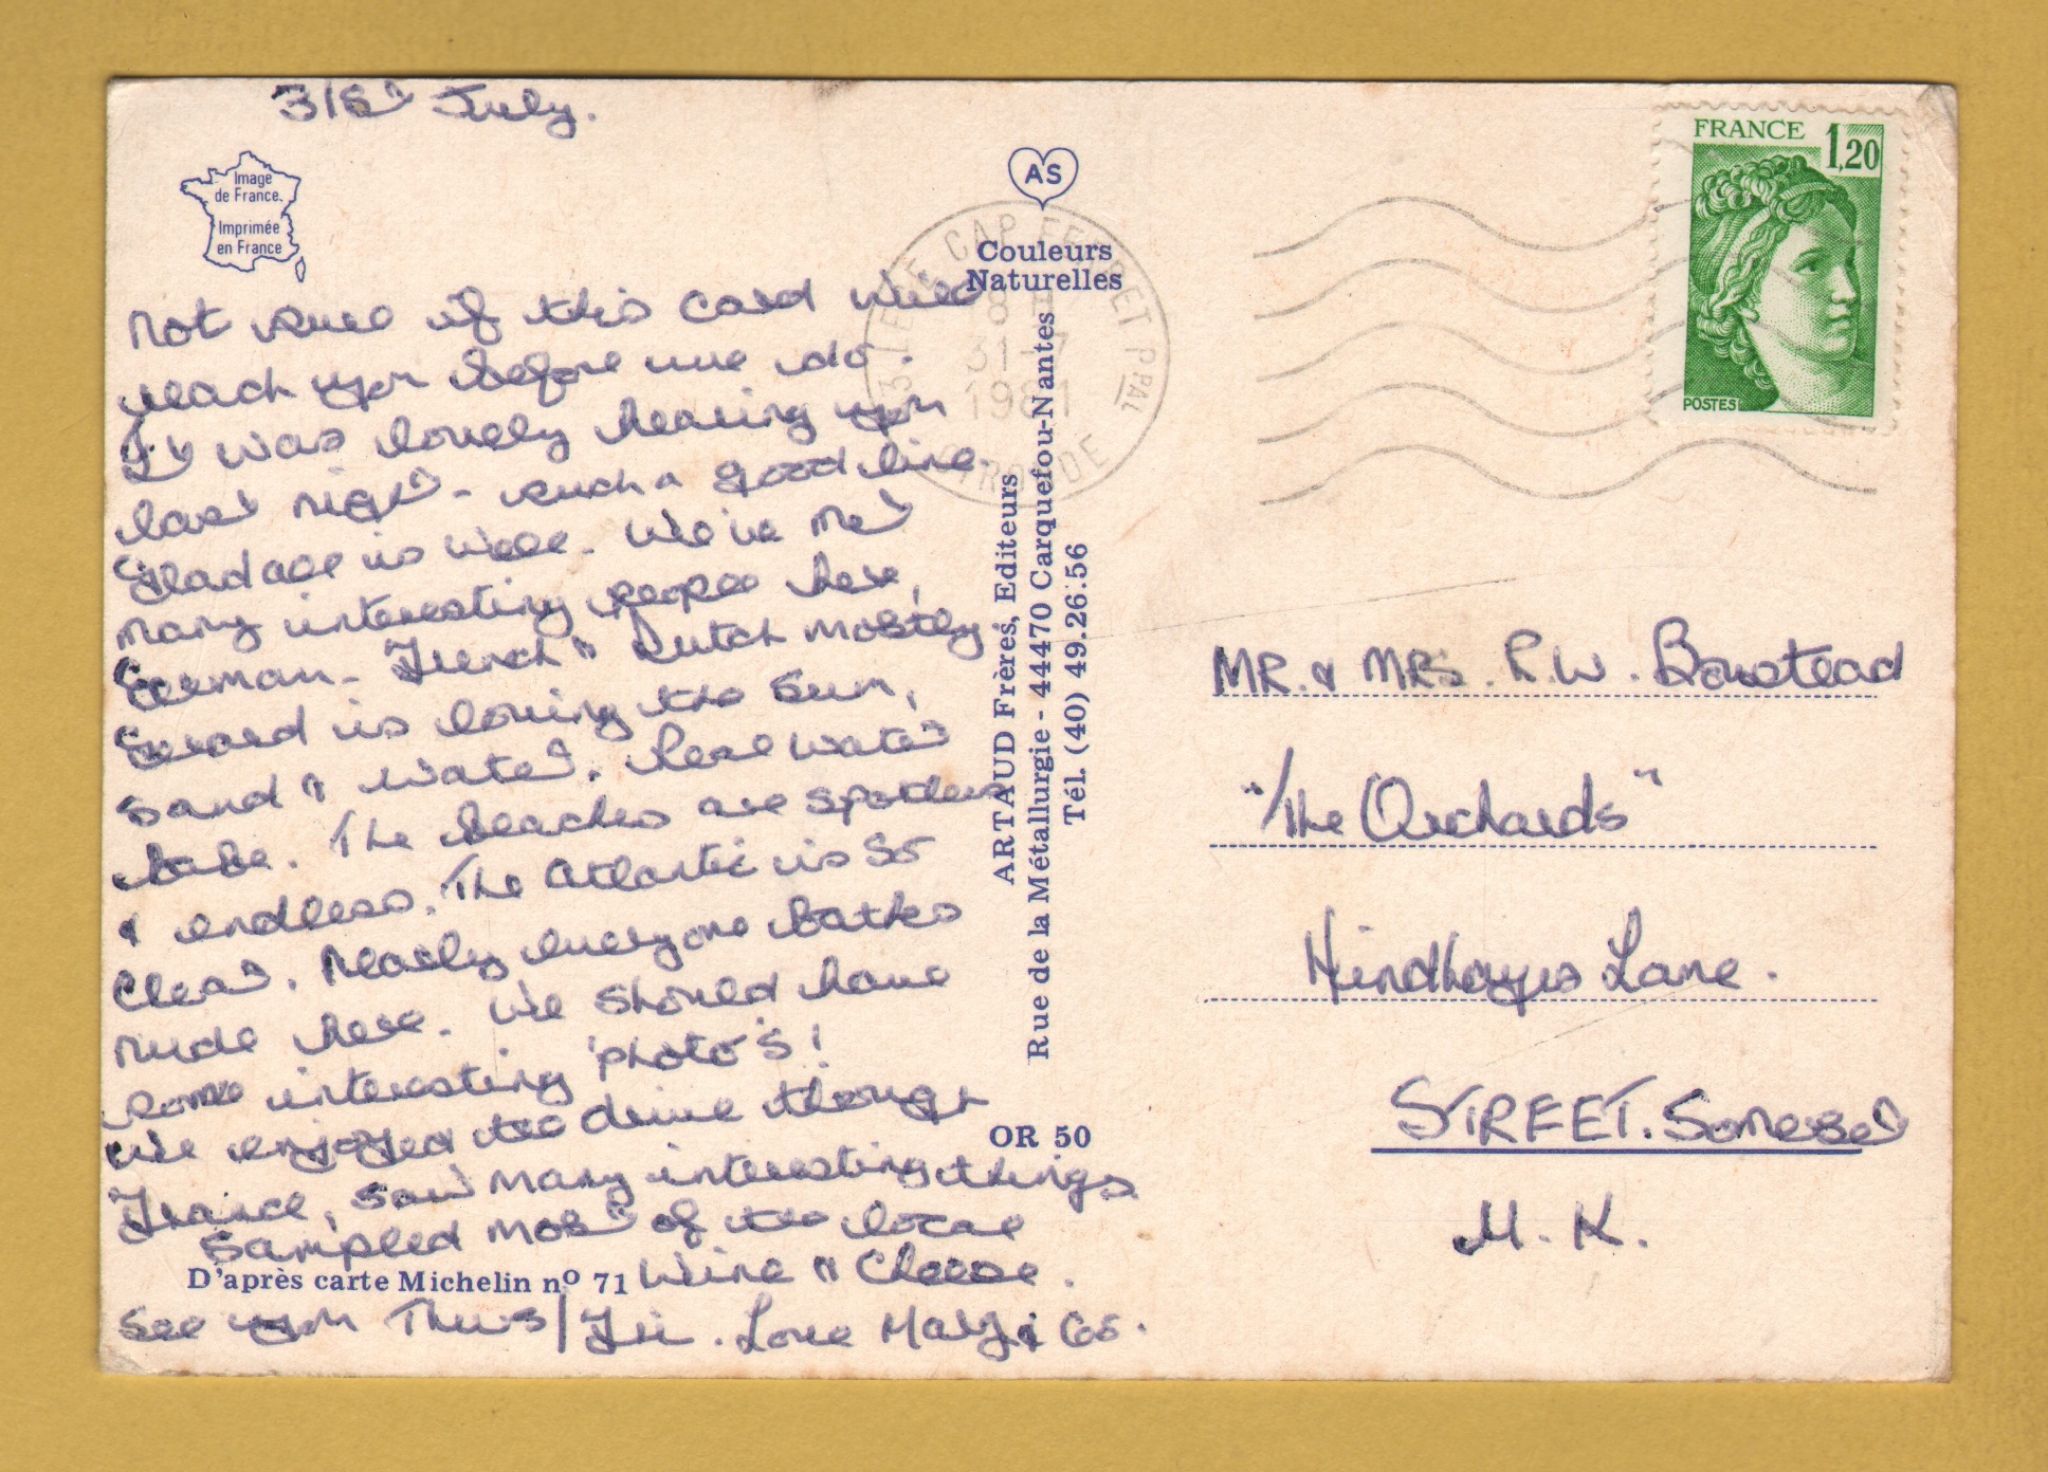 31st July.
Image
de France.
Imprimée
en France
Not sure if this card will
reach you before we do.
It was lovely hearing you
last night - such a good line.
Glad all is well. We've met
many interesting people here,
German - French & Dutch mostly
Gerard is loving the sun,
sand & water. Real water
babe. The beaches are spotless
& endless. The Atlantic is so
clear. Nearly everyone bathes
nude here. We should have
some interesting 'photo's!
We enjoyed the drive through
France, saw many interesting things
sampled most of the local
wine & cheese.
D'après carte Michelin nº 71
See you Thurs/Fri. Love Marg & Co.
AS
Couleurs
Naturelles
CAP FERRET PPAL
18 H
31-7
1981
GIRONDE
ARTAUD Frères, Editeurs
Rue de la Métallurgie - 44470 Carquefou-Nantes
Tél. (40) 49.26.56
OR 50
FRANCE 1,20
POSTES
MR. & MRS. R.W. Boustead
"The Orchards"
Hindhayes Lane.
STREET. Somerset
U.K.